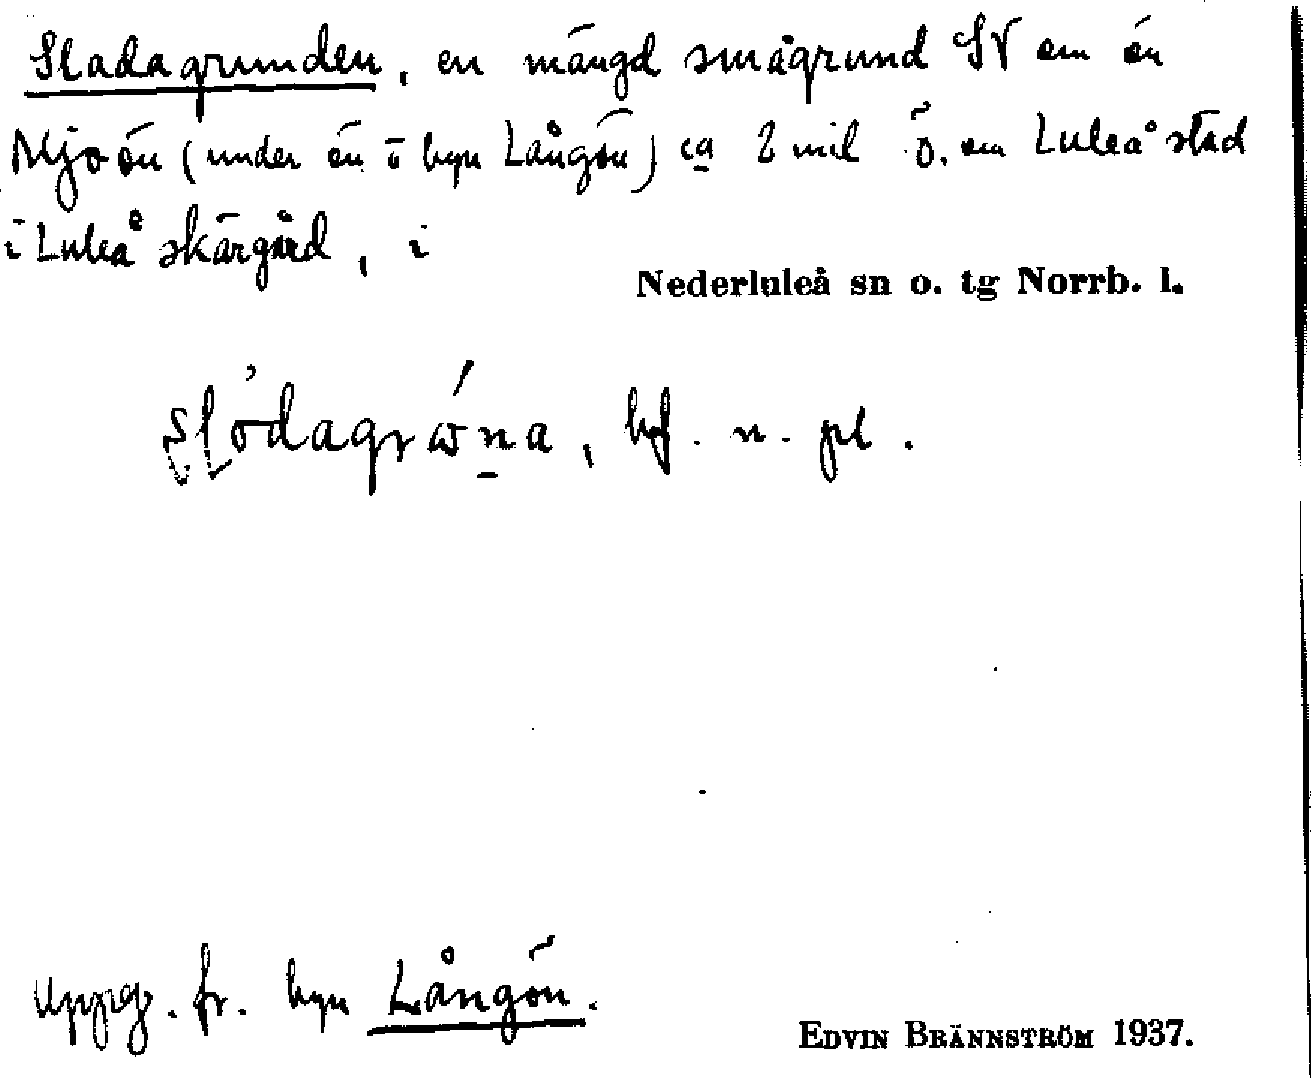 Sladagrunden, en mängd smågrund SV om ön
Mjoön (under ön o byn Långön) ca 2 mil ö. om Luleå stad
i Luleå skärgård, i
Nederluleå sn o. tg Norrb. l.
bf. n. pl.
Uppg. fr. byn Långön.
EDVIN BRÄNNSTRÖM 1937.